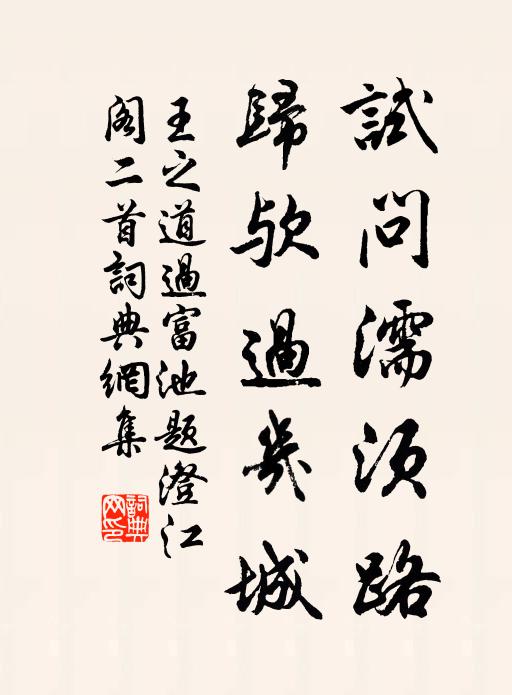 試問濡須路
歸欤過幾城
王之道過富池題澄江
阁二首詞典網集
詞典網印